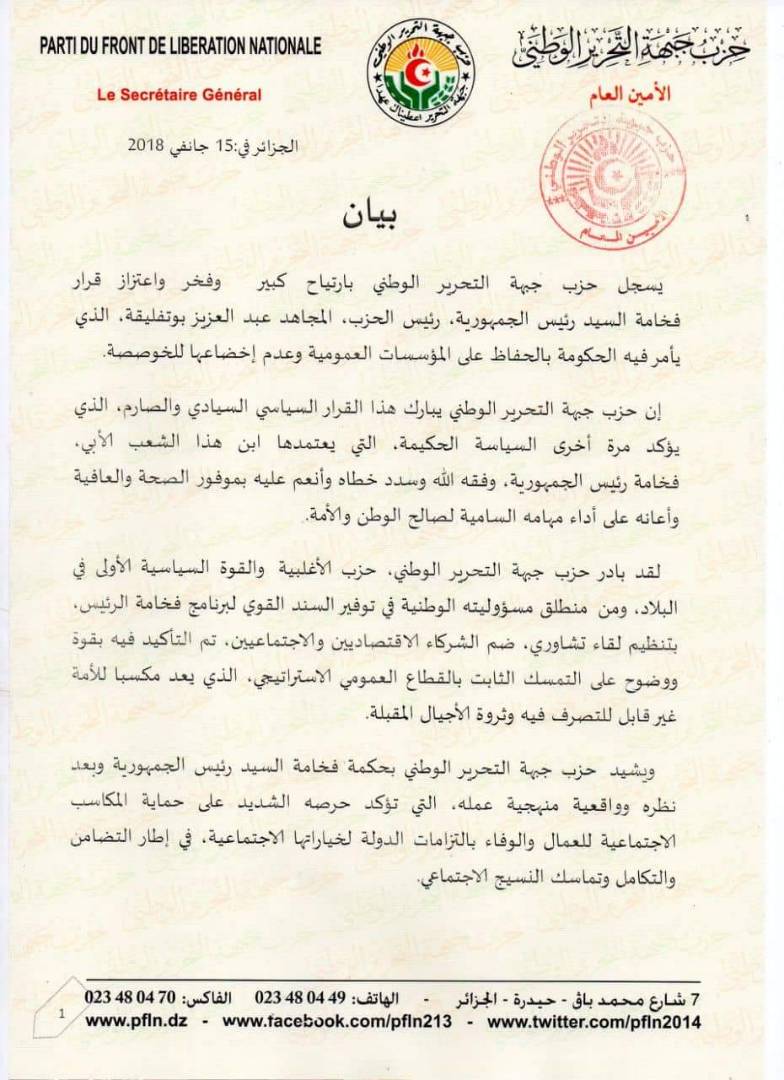 PARTI DU FRONT DE LIBERATION NATIONALE
حزب جبهة التحرير الوطني
Le Secrétaire Général
الأمين العام
حزب جبهة التحرير الوطني
جبهة التحرير اعطيناك عهدا
الجزائر في: 15 جانفي 2018
حزب جبهة التحرير الوطني
الأمين العام
بيان
يسجل حزب جبهة التحرير الوطني بارتياح كبير وفخر واعتزاز قرار
فخامة السيد رئيس الجمهورية، رئيس الحزب، المجاهد عبد العزيز بوتفليقة، الذي
يأمر فيه الحكومة بالحفاظ على المؤسسات العمومية وعدم إخضاعها للخوصصة.
إن حزب جبهة التحرير الوطني يبارك هذا القرار السياسي السيادي والصارم، الذي
يؤكد مرة أخرى السياسة الحكيمة، التي يعتمدها ابن هذا الشعب الأبي،
فخامة رئيس الجمهورية، وفقه الله وسدد خطاه وأنعم عليه بموفور الصحة والعافية
وأعانه على أداء مهامه السامية لصالح الوطن والأمة.
لقد بادر حزب جبهة التحرير الوطني، حزب الأغلبية والقوة السياسية الأولى في
البلاد، ومن منطلق مسؤوليته الوطنية في توفير السند القوي لبرنامج فخامة الرئيس،
بتنظيم لقاء تشاوري، ضم الشركاء الاقتصاديين والاجتماعيين، تم التأكيد فيه بقوة
ووضوح على التمسك الثابت بالقطاع العمومي الاستراتيجي، الذي يعد مكسبا للأمة
غير قابل للتصرف فيه وثروة الأجيال المقبلة.
ويشيد حزب جبهة التحرير الوطني بحكمة فخامة السيد رئيس الجمهورية وبعد
نظره وواقعية منهجية عمله، التي تؤكد حرصه الشديد على حماية المكاسب
الاجتماعية للعمال والوفاء بالتزامات الدولة لخياراتها الاجتماعية، في إطار التضامن
والتكامل وتماسك النسيج الاجتماعي.
7 شارع محمد باق - حيدرة - الجزائر - الهاتف: 49 04 48 023 الفاكس: 70 04 48 023
www.pfln.dz - www.facebook.com/pfln213 - www.twitter.com/pfln2014
1